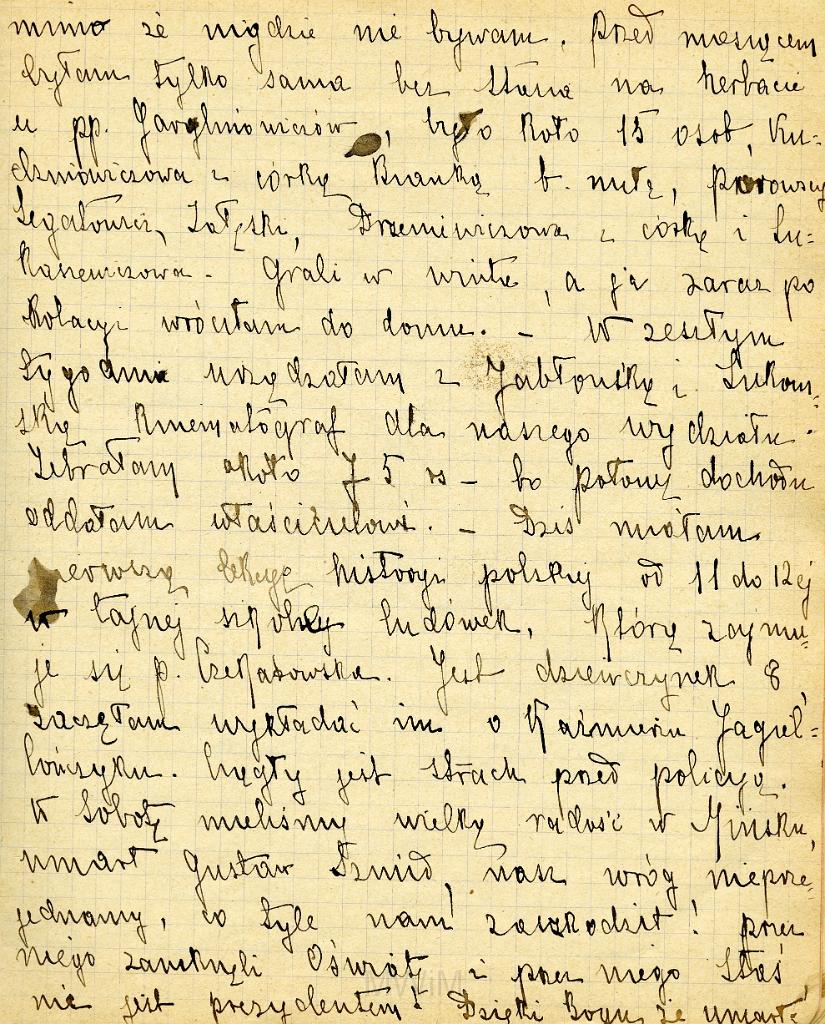 mimo że nigdzie nie bywam. Przed miesiącem
byłam tylko sama bez Stasia na herbacie
u pp. , było koło 15 osób, Ku-
dzinowiczowa z córką Bianką b. miłą,
Załęski, Drzemiewiczowa z córką i Łu-
kaszewiczowa. Grali w winta, a ja zaraz po
kolacyi wróciłam do domu. – W zeszłym
tygodniu urządzałam z Jabłońską i Łukom-
ską kinematograf dla naszego wydziału.
Zebrałam około 75 rs – bo połowę dochodu
oddałam właścicielowi. – Dziś miałam
pierwszą lekcyę historyi polskiej od 11 do 12ej
w tajnej szkole ludówek, którą zajmu-
je się p. Czekasowska. Jest dziewczynek 8,
zaczęłam wykładać im o Kaźmierzu Jagiel-
lończyku. Ciągły jest strach przed policyą.
W Sobotę mieliśmy wielką radość w Mińsku,
umarł Gustaw Szmid, nasz wróg nieprze-
jednany, co tyle nam zaszkodził! przez
niego zamknęli Oświatę i przez niego Staś
nie jest prezydentem! Dzięki Bogu że umarł